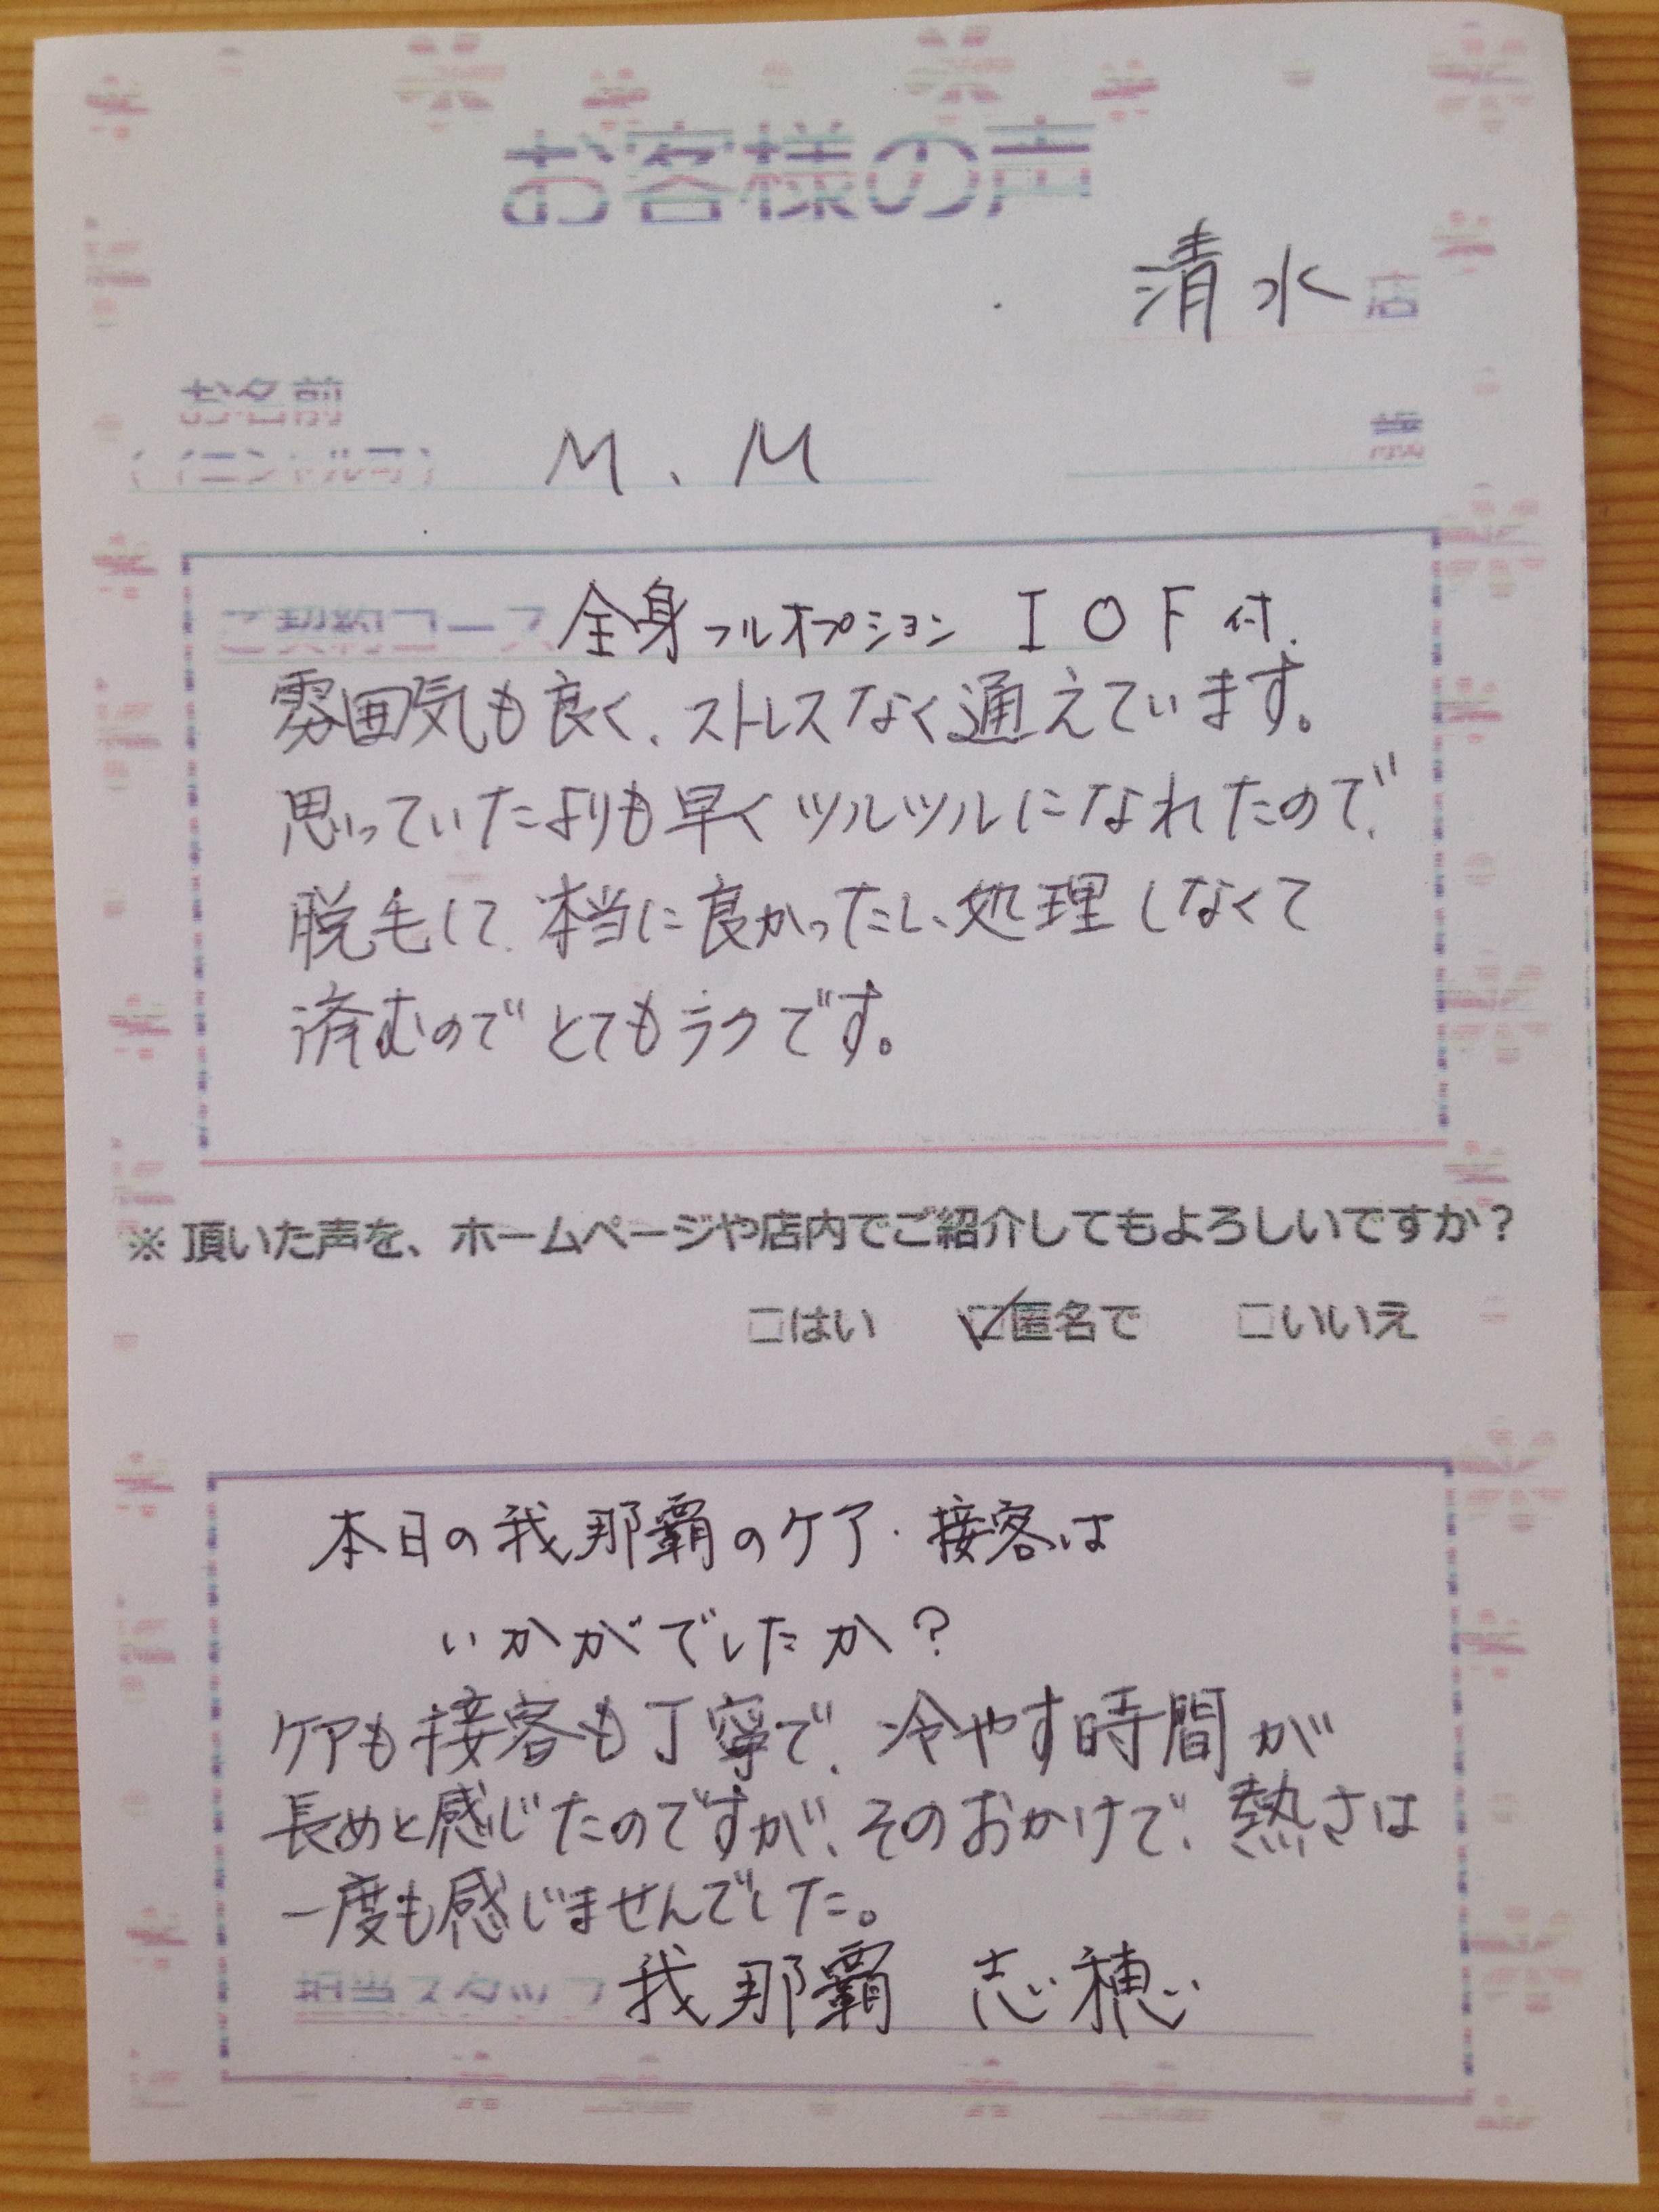 お客様の声
清水店
お名前
(イニシャル可) M、M 歳
ご契約コース 全身フルオプション IOF付.
雰囲気も良く、ストレスなく通えています。
思っていたよりも早くツルツルになれたので、
脱毛して、本当に良かったし、処理しなくて
済むのでとてもラクです。
※頂いた声を、ホームページや店内でご紹介してもよろしいですか？
□はい ☑匿名で □いいえ
本日の我那覇のケア・接客は
いかがでしたか？
ケアも接客も丁寧で、冷やす時間が
長めと感じたのですが、そのおかけで、熱さは
一度も感じませんでした。
担当スタッフ 我那覇 志穂